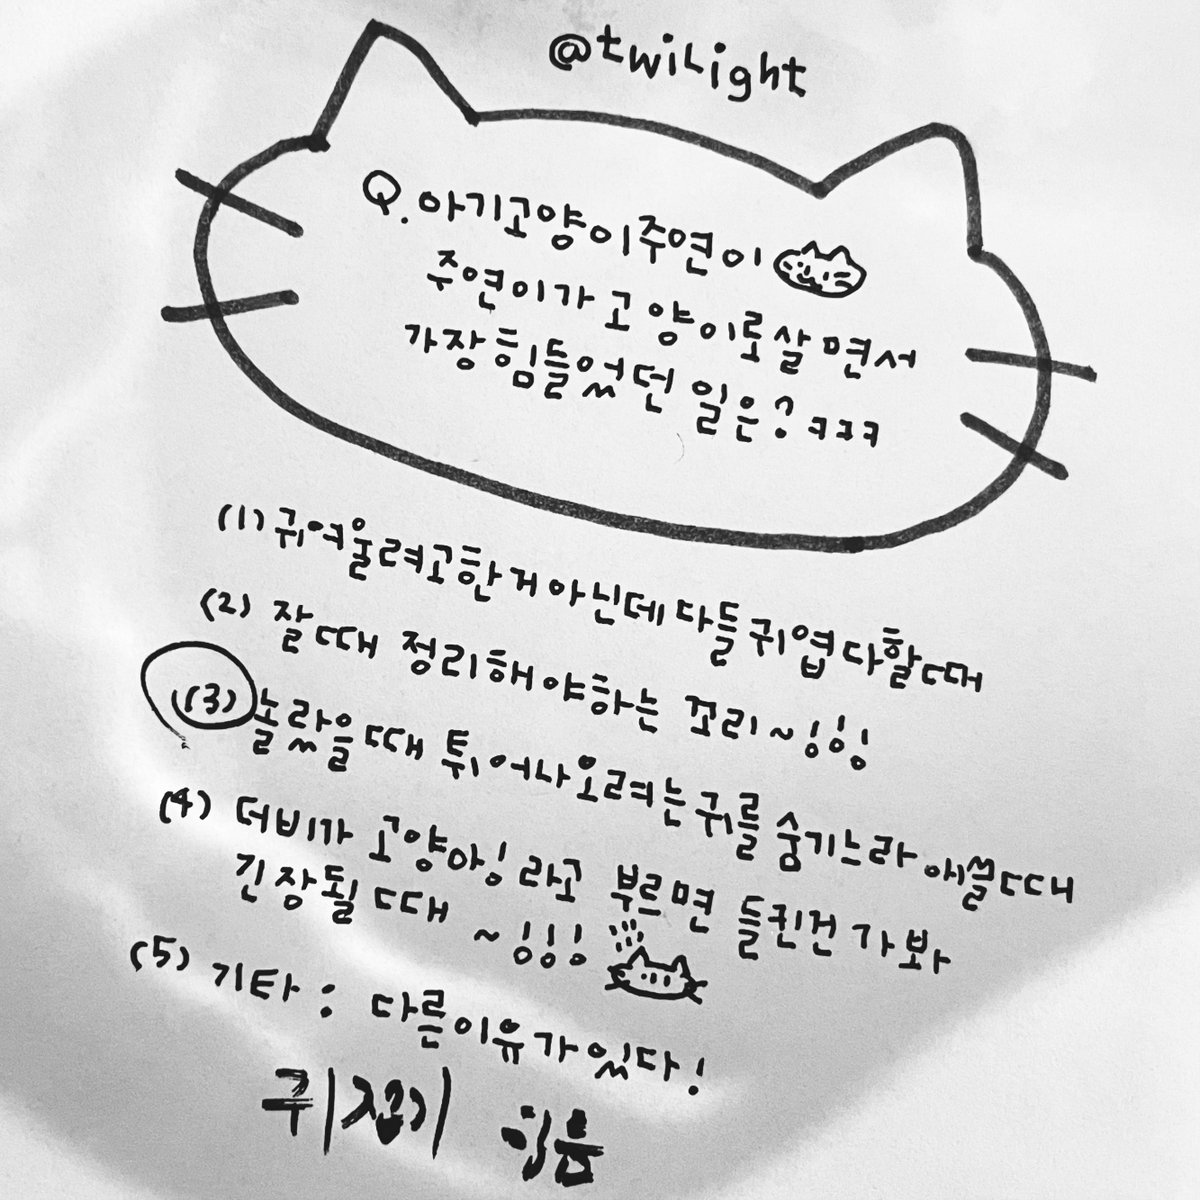 @twilight
Q. 아기고양이주연이
주연이가 고양이로살면서
가장힘들었던 일은? ㅋㅋㅋ
(1) 귀여울려고한거아닌데 다들귀엽다할때
(2) 잘때 정리해야하는 꼬리~!!!
(3) 놀랐을때 튀어나오려는귀를 숨기느라 애쓸때
(4) 더비가 고양아! 라고 부르면 들킨건가봐
긴장될때 ~!!!
(5) 기타 : 다른이유가있다!
귀접기 힘듬